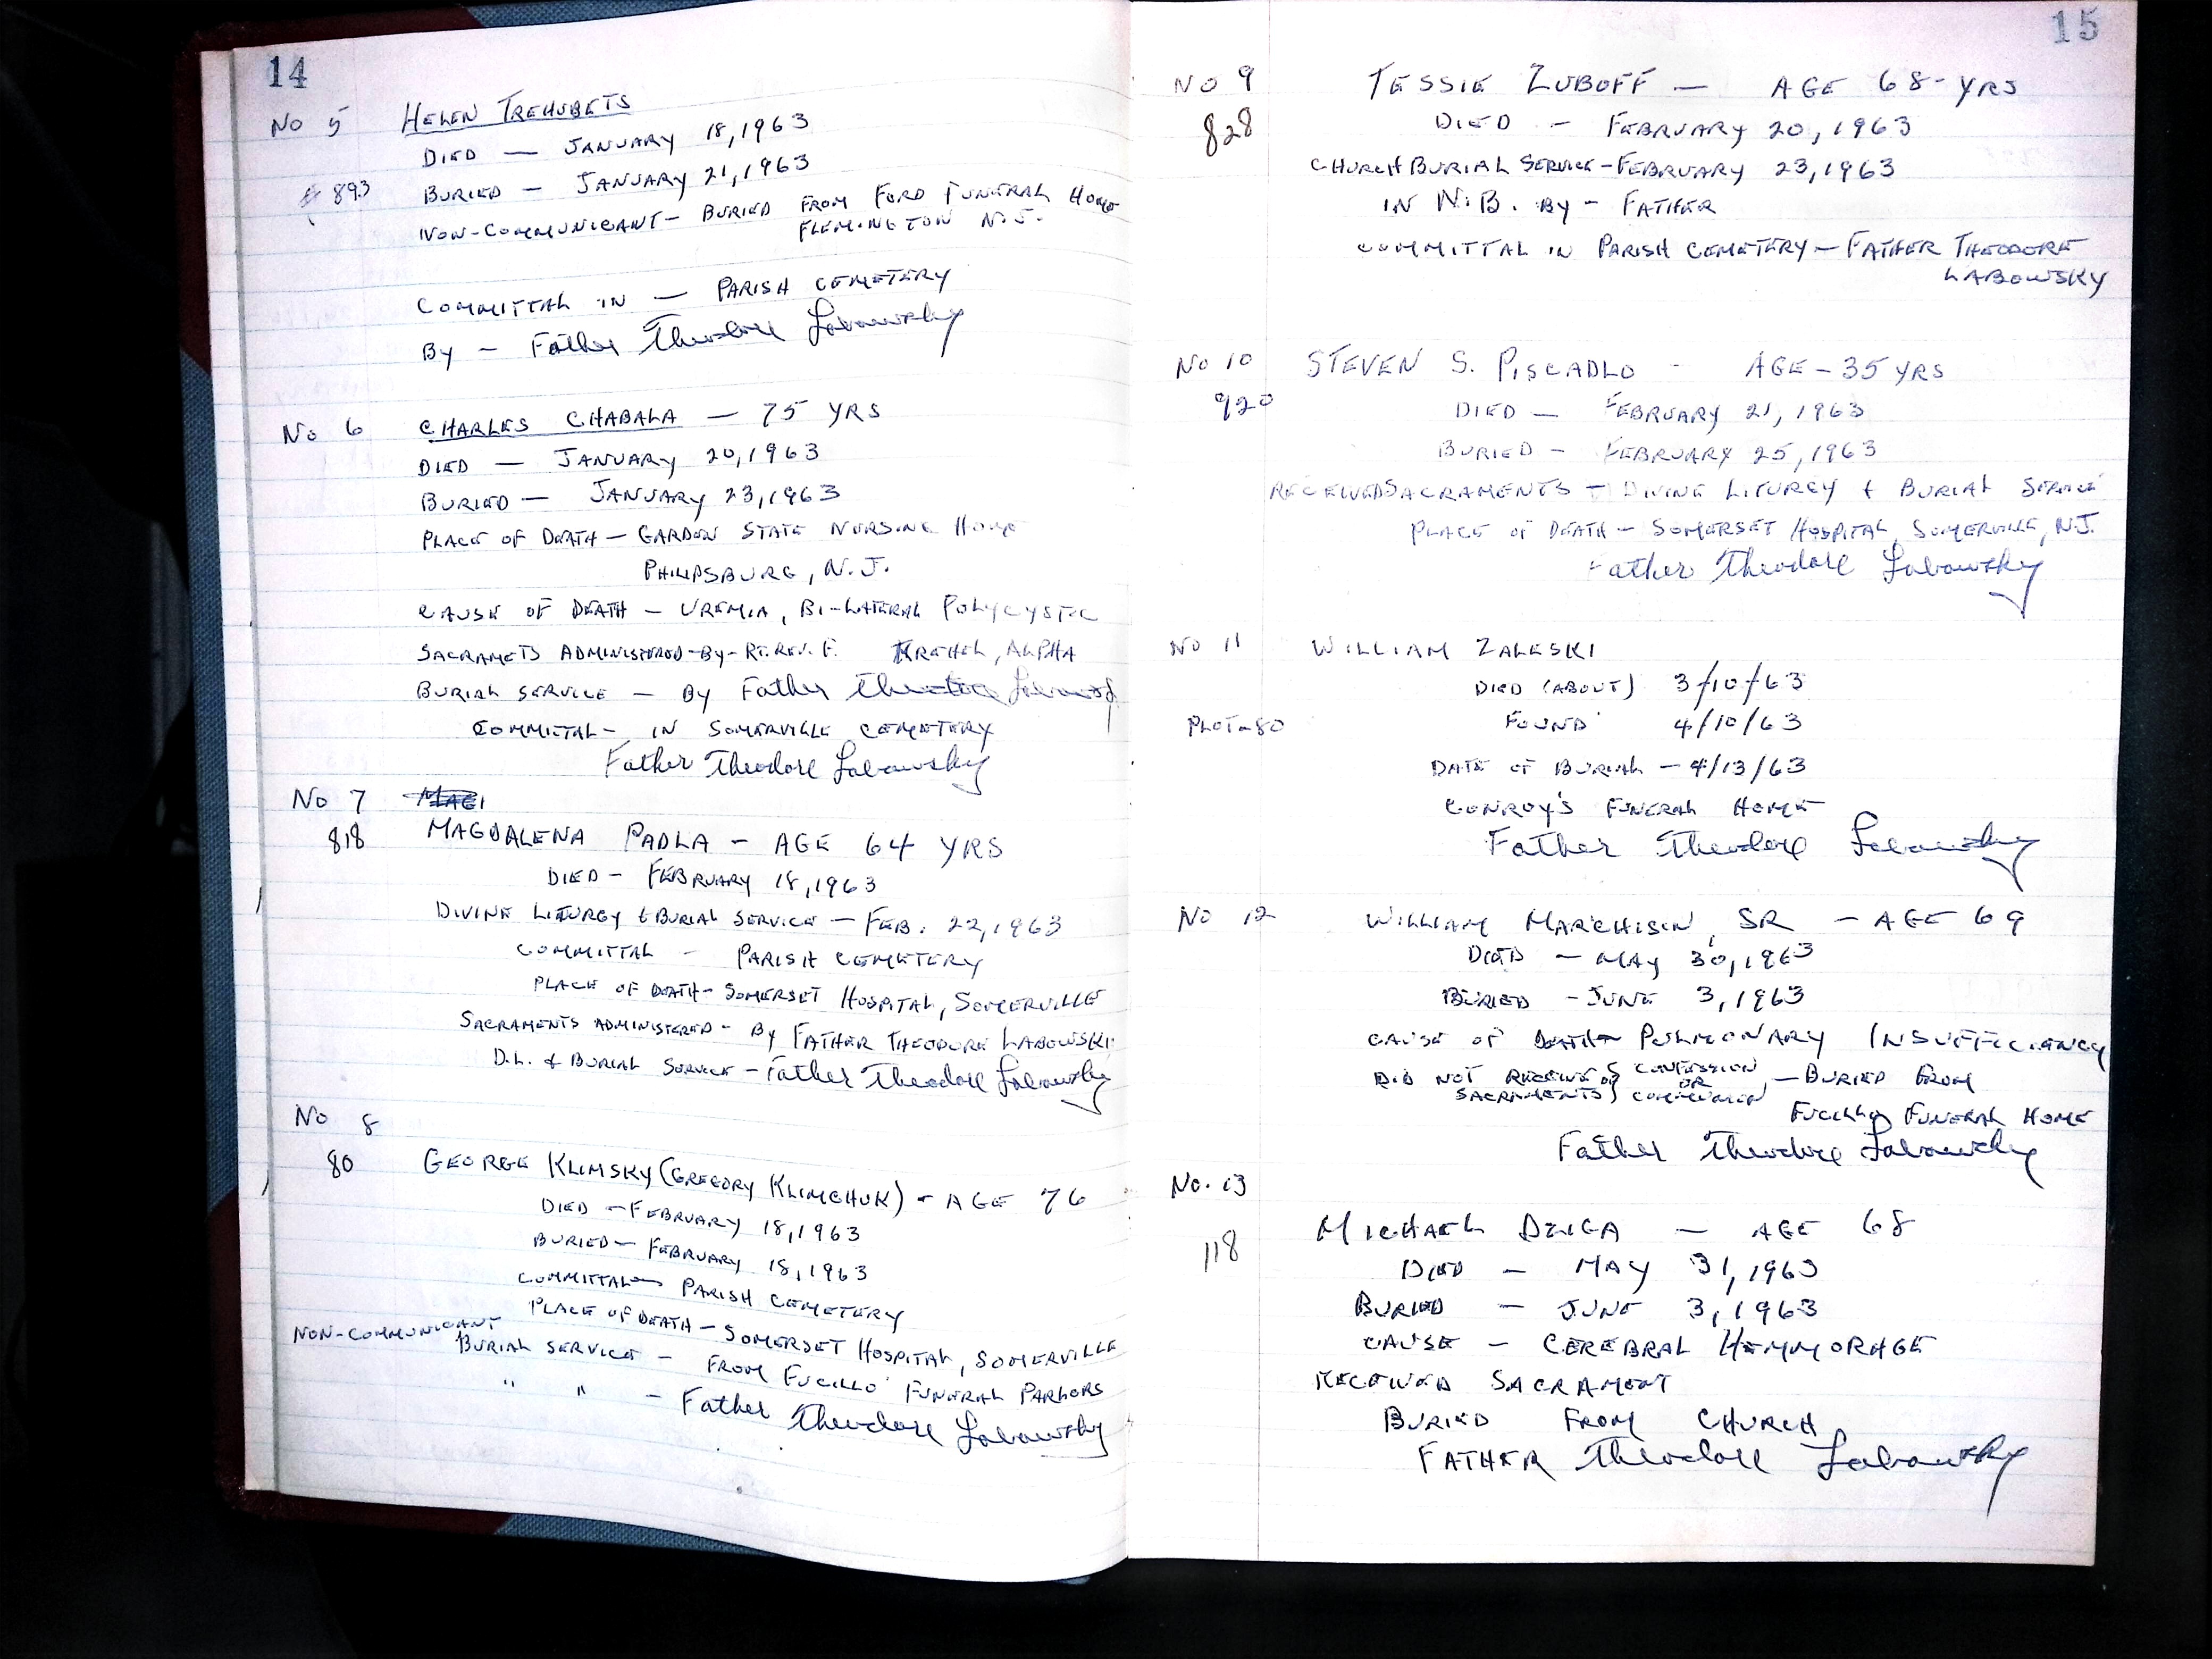 14
No 5 HELEN TREHUBETS
DIED — JANUARY 18, 1963
# 893 BURIED — JANUARY 21, 1963
NON-COMMUNICANT — BURIED FROM FORD FUNERAL HOME
FLEMINGTON N.J.
COMMITTAL IN — PARISH CEMETERY
BY — Father Theodore Labowsky
No 6 CHARLES CHABALA — 75 YRS
DIED — JANUARY 20, 1963
BURIED — JANUARY 23, 1963
PLACE OF DEATH — GARDEN STATE NURSING HOME
PHILIPSBURG, N.J.
CAUSE OF DEATH — UREMIA, BI-LATERAL POLYCYSTIC
SACRAMETS ADMINISTERED-BY-RT. REV. F. KREHEL, ALPHA
BURIAL SERVICE — BY Father Theodore Labowsky
COMMITTAL — IN SOMERVILLE CEMETERY
Father Theodore Labowsky
No 7
818 MAGDALENA PADLA — AGE 64 YRS
DIED — FEBRUARY 18, 1963
DIVINE LITURGY & BURIAL SERVICE — FEB. 22, 1963
COMMITTAL — PARISH CEMETERY
PLACE OF DEATH — SOMERSET HOSPITAL, SOMERVILLE
SACRAMENTS ADMINISTERED — BY FATHER THEODORE LABOWSKI
D.L. & BURIAL SERVICE — Father Theodore Labowsky
No 8
80 GEORGE KLIMSKY (GREGORY KLIMCHUK) — AGE 76
DIED — FEBRUARY 18, 1963
BURIED — FEBRUARY 18, 1963
COMMITTAL — PARISH CEMETERY
PLACE OF DEATH — SOMERSET HOSPITAL, SOMERVILLE
NON-COMMUNICANT
BURIAL SERVICE — FROM FUCILLO FUNERAL PARLORS
" " — Father Theodore Labowsky
15
No 9 TESSIE ZUBOFF — AGE 68 - YRS
828 DIED — FEBRUARY 20, 1963
CHURCH BURIAL SERVICE — FEBRUARY 23, 1963
IN N.B. BY — FATHER
COMMITTAL IN PARISH CEMETERY — FATHER THEODORE
LABOWSKY
No 10 STEVEN S. PISCADLO - AGE — 35 YRS
920 DIED — FEBRUARY 21, 1963
BURIED — FEBRUARY 25, 1963
RECEIVED SACRAMENTS — DIVINE LITURGY & BURIAL SERVICE
PLACE OF DEATH — SOMERSET HOSPITAL, SOMERVILLE, N.J.
Father Theodore Labowsky
No 11 WILLIAM ZALESKI
DIED (ABOUT) 3/10/63
PLOT-80 FOUND 4/10/63
DATE OF BURIAL — 4/13/63
CONROY'S FUNERAL HOME
Father Theodore Labowsky
No 12 WILLIAM MARCHISIN, SR — AGE 69
DIED — MAY 30, 1963
BURIED — JUNE 3, 1963
CAUSE OF DEATH — PULMONARY INSUFFICIENCY
DID NOT RECEIVE SACRAMENTS OF CONFESSION OR COMMUNION — BURIED FROM
FUCILLO FUNERAL HOME
Father Theodore Labowsky
No. 13
118 MICHAEL DZIGA — AGE 68
DIED — MAY 31, 1963
BURIED — JUNE 3, 1963
CAUSE — CEREBRAL HEMMORAGE
RECEIVED SACRAMENT
BURIED FROM CHURCH
FATHER Theodore Labowsky